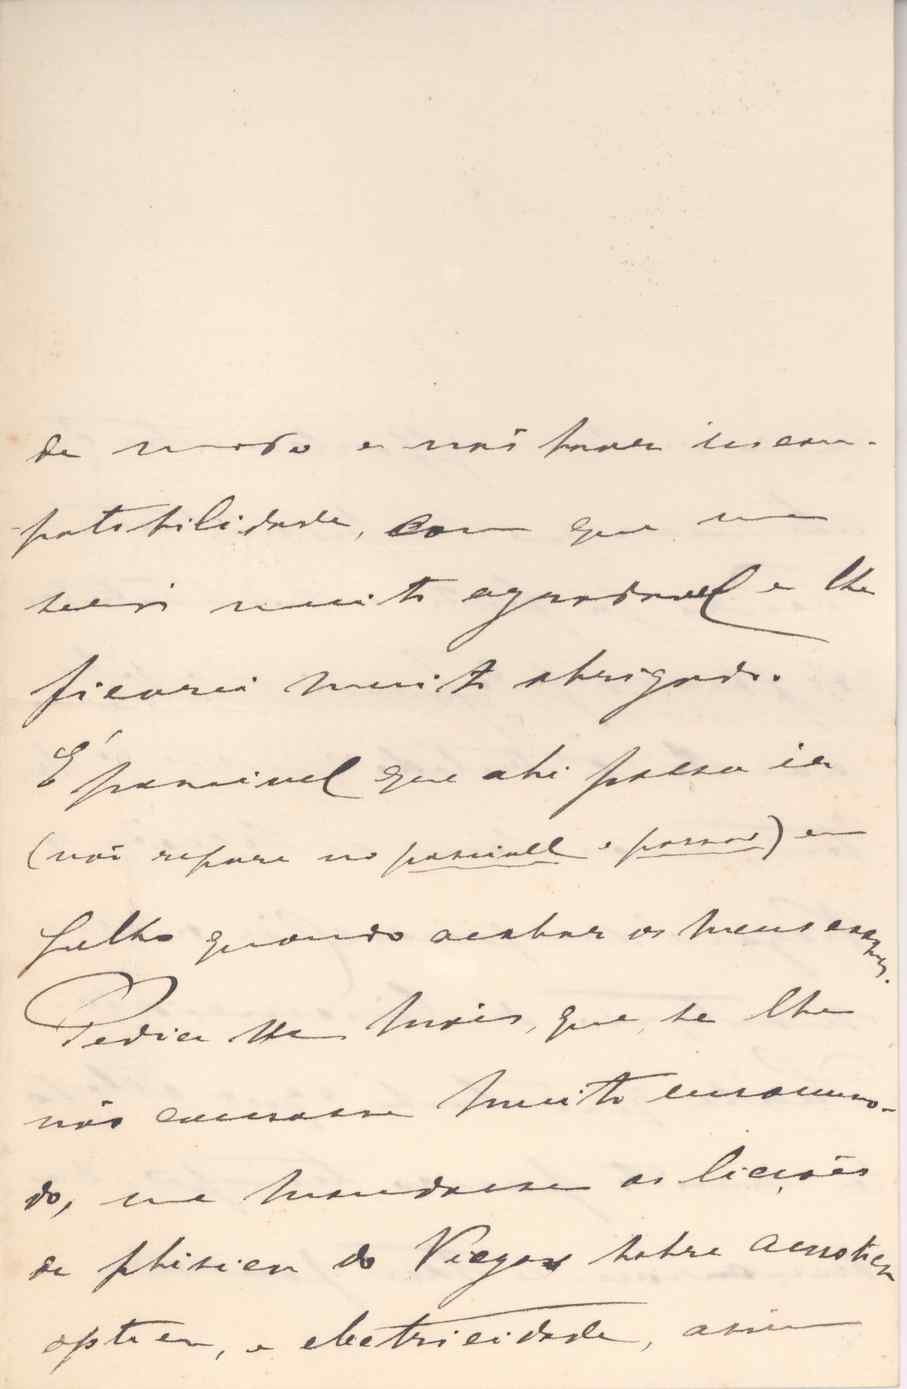 de modo a não haver incom-
patibilidade, com que me
seria muito agradavel e lhe
ficarei muito obrigado.
É passivel que ahi possa ir
(não repare no passivell e possa) em
Julho quando acabar os meus exames.
Pedia lhe mais, que, se lhe
não causasse muito encommo-
do, me mandasse as licções
de phisica do Viegas sobre acustica
optica, e electricidade, assim